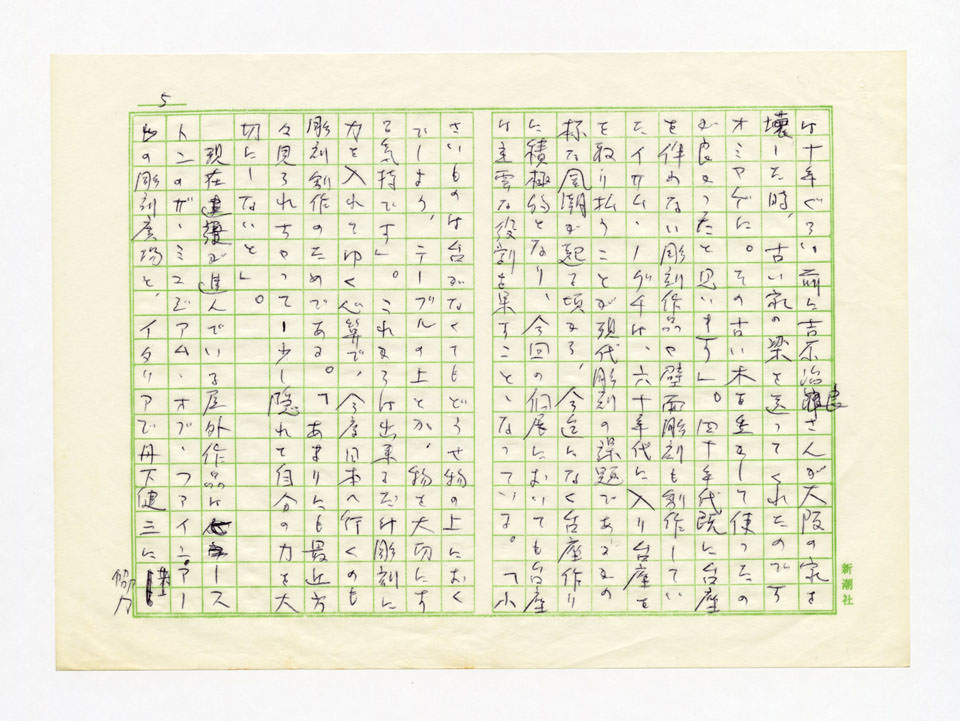 5
は十年ぐらい前に吉原治良さんが大阪の家を
壊した時、古い家の梁を送ってくれたのです
オミヤゲに。その古い木を台座として使ったの
が良かったと思います」。四十年代既に台座
を伴わない彫刻作品や壁面彫刻も創作してい
たイサム・ノグチは、六十年代に入り台座を
を取り払うことが現代彫刻の課題であるかの
様な風潮が起て頃から、今迄になく台座作り
に積極的となり、今回の個展においても台座
は重要な役割を果すこととなっている。「小
さいものは台がなくてもどうせ物の上におく
でしょう、テーブルの上とか。物を大切にす
る気持です」。これからは出来るだけ彫刻に
力を入れてゆく心算で、今度日本へ行くのも
彫刻創作のためである。「あまりにも最近方
々見られちゃって少し隠れて自分の力を大
切にしないと」。
現在建設が進んでいる屋外作品はヒュース
トンのザ・ミュゼアム・オブ・ファイン・アー
トの彫刻広場と、イタリアで丹下健三に
協力
新潮社